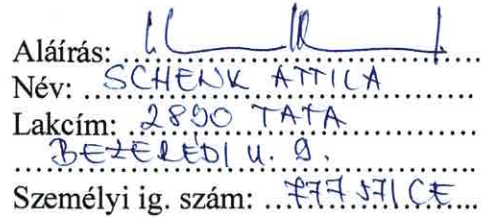 Aláírás:
Név: SCHENK ATTILA
Lakcím: 2890 TATA
BEZERÉDI u. 9.
Személyi ig. szám: 777571CE